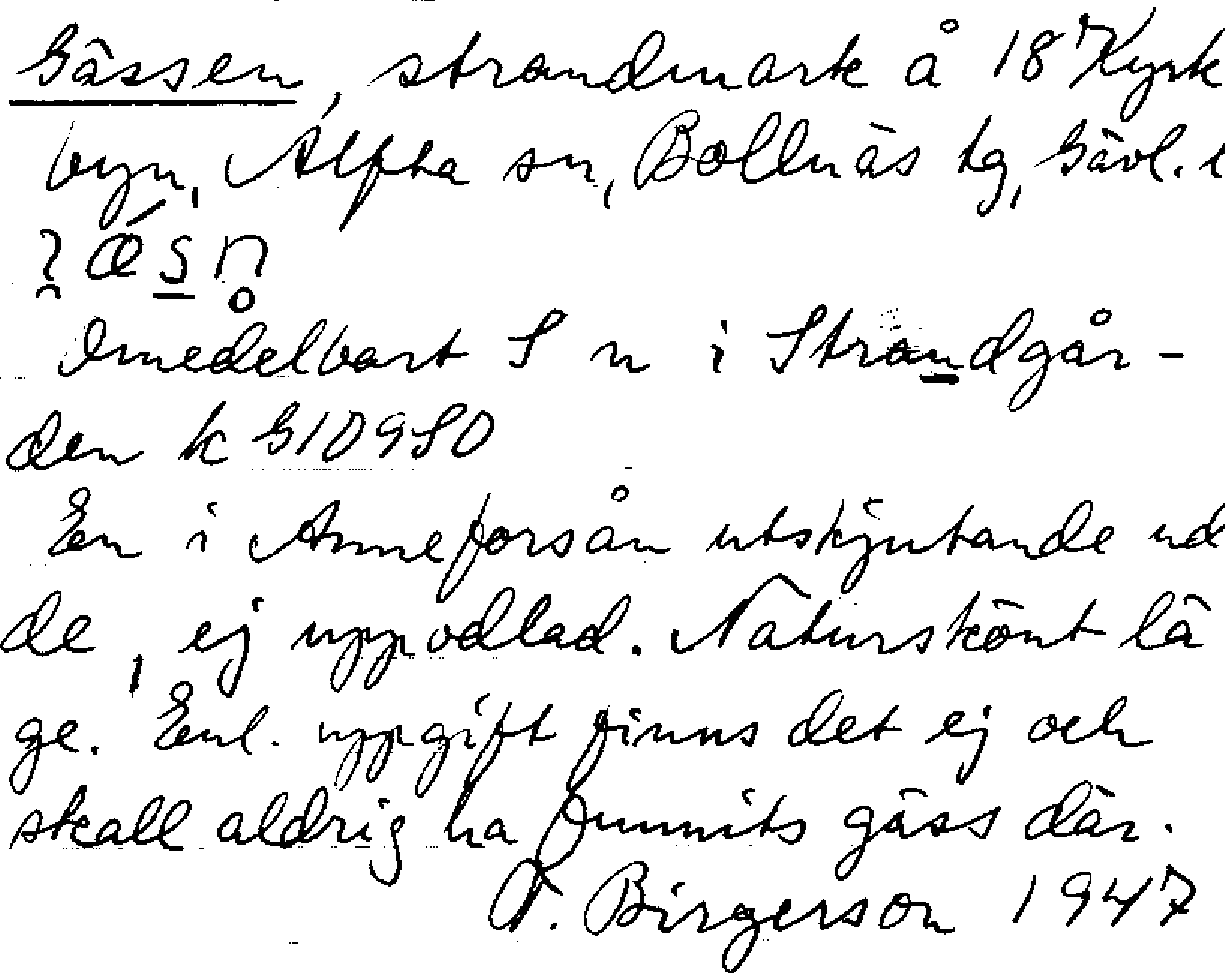 Gässen, strandmark å 18⁷ Kyrk
byn, Alfta sn, Bollnäs tg, Gävl. l
Omedelbart S n i Strandgår-
den k G10950
En i Anneforsån utskjutande ud
de, ej uppodlad. Naturskönt lä
ge. Enl. uppgift finns det ej och
skall aldrig ha funnits gäss där.
T. Birgerson 1947